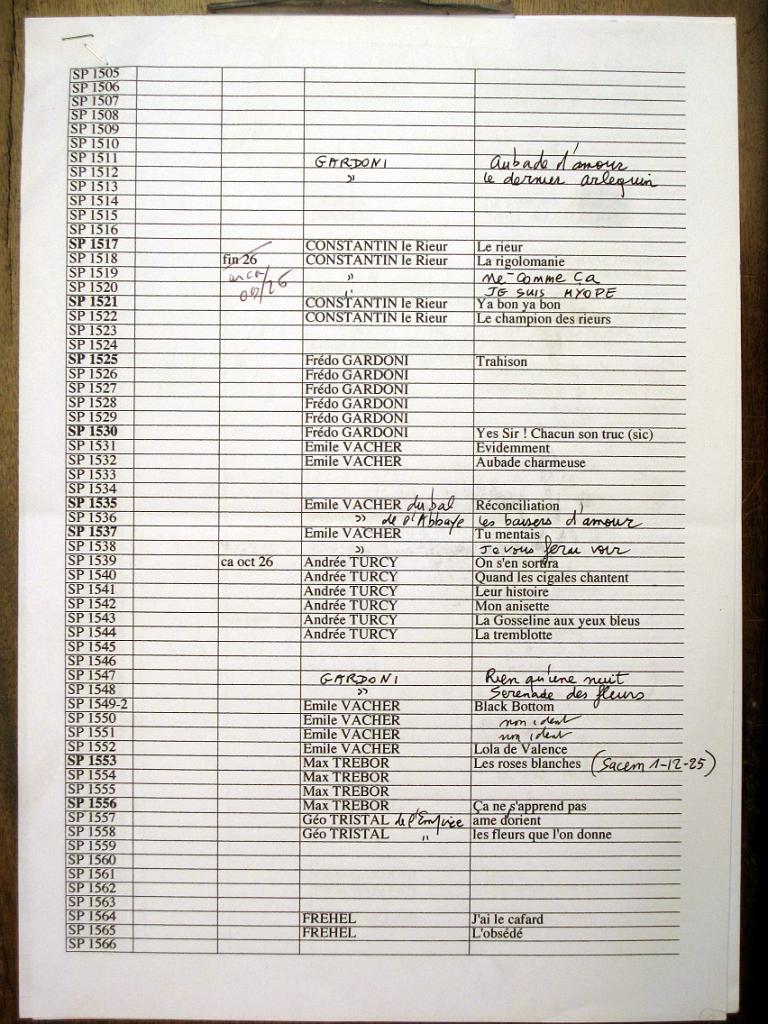 SP 1505
SP 1506
SP 1507
SP 1508
SP 1509
SP 1510
SP 1511 GARDONI Aubade d'amour
SP 1512 " Le dernier arlequin
SP 1513
SP 1514
SP 1515
SP 1516
SP 1517 CONSTANTIN le Rieur Le rieur
SP 1518 fin 26 CONSTANTIN le Rieur La rigolomanie
SP 1519 " Comme ça
SP 1520 /26 " JE SUIS MYOPE
SP 1521 CONSTANTIN le Rieur Ya bon ya bon
SP 1522 CONSTANTIN le Rieur Le champion des rieurs
SP 1523
SP 1524
SP 1525 Frédo GARDONI Trahison
SP 1526 Frédo GARDONI
SP 1527 Frédo GARDONI
SP 1528 Frédo GARDONI
SP 1529 Frédo GARDONI
SP 1530 Frédo GARDONI Yes Sir ! Chacun son truc (sic)
SP 1531 Emile VACHER Evidemment
SP 1532 Emile VACHER Aubade charmeuse
SP 1533
SP 1534
SP 1535 Emile VACHER du bal Réconciliation
SP 1536 " de l'Abbaye Les baisers d'amour
SP 1537 Emile VACHER Tu mentais
SP 1538 " Je vous ferai voir
SP 1539 ca oct 26 Andrée TURCY On s'en sortira
SP 1540 Andrée TURCY Quand les cigales chantent
SP 1541 Andrée TURCY Leur histoire
SP 1542 Andrée TURCY Mon anisette
SP 1543 Andrée TURCY La Gosseline aux yeux bleus
SP 1544 Andrée TURCY La tremblotte
SP 1545
SP 1546
SP 1547 GARDONI Rien qu'une nuit
SP 1548 " Serenade des fleurs
SP 1549-2 Emile VACHER Black Bottom
SP 1550 Emile VACHER non ident
SP 1551 Emile VACHER non ident
SP 1552 Emile VACHER Lola de Valence
SP 1553 Max TREBOR Les roses blanches (Sacem 1-12-25)
SP 1554 Max TREBOR
SP 1555 Max TREBOR
SP 1556 Max TREBOR Ça ne s'apprend pas
SP 1557 Géo TRISTAL de l'Empire ame d'orient
SP 1558 Géo TRISTAL " les fleurs que l'on donne
SP 1559
SP 1560
SP 1561
SP 1562
SP 1563
SP 1564 FREHEL J'ai le cafard
SP 1565 FREHEL L'obsédé
SP 1566